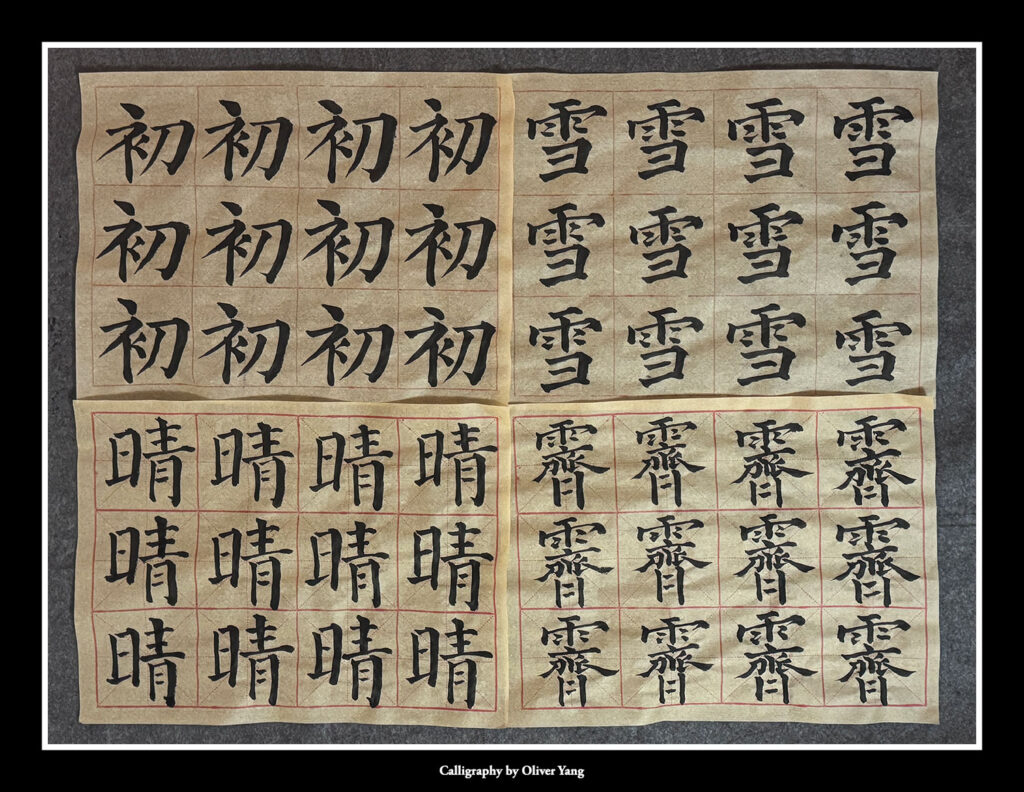 初初初初
初初初初
初初初初
雪雪雪雪
雪雪雪雪
雪雪雪雪
晴晴晴晴
晴晴晴晴
晴晴晴晴
霽霽霽霽
霽霽霽霽
霽霽霽霽
Calligraphy by Oliver Yang